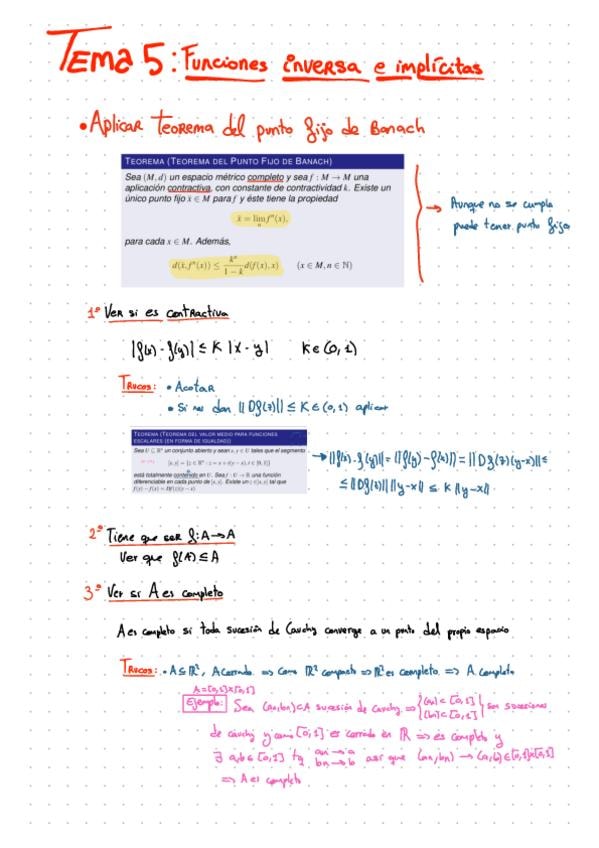 Tema 5: Funciones inversa e implícitas
• Aplicar Teorema del punto fijo de Banach
TEOREMA (TEOREMA DEL PUNTO FIJO DE BANACH)
Sea (M, d) un espacio métrico completo y sea f : M → M una
aplicación contractiva, con constante de contractividad k. Existe un
único punto fijo x̄ ∈ M para f y éste tiene la propiedad
x̄ = lim_n fⁿ(x),
para cada x ∈ M. Además,
d(x̄, fⁿ(x)) ≤ kⁿ/(1 − k) d(f(x), x) (x ∈ M, n ∈ ℕ)
→ Aunque no se cumpla
puede tener punto fijo
1º Ver si es contractiva
|f(x) - f(y)| ≤ K |x - y| K ∈ (0, 1)
Trucos: • Acotar
• Si nos dan ||Df(z)|| ≤ K ∈ (0, 1) aplicar
TEOREMA (TEOREMA DEL VALOR MEDIO PARA FUNCIONES
ESCALARES (EN FORMA DE IGUALDAD))
Sea U ⊆ ℝⁿ un conjunto abierto y sean x, y ∈ U tales que el segmento
[x, y] = {z ∈ ℝⁿ : z = x + t(y − x), t ∈ [0, 1]}
está totalmente contenido en U. Sea f : U → ℝ una función
diferenciable en cada punto de [x, y]. Existe un z ∈ ]x, y[ tal que
f(y) − f(x) = Df(z)(y − x).
→ ||f(x) - f(y)|| = ||f(y) - f(x)|| = ||Df(z)(y-x)|| ≤
≤ ||Df(z)|| ||y-x|| ≤ K ||y-x||
2º Tiene que ser f: A → A
Ver que f(A) ⊆ A
3º Ver si A es completo
A es completo si toda sucesión de Cauchy converge a un punto del propio espacio
Trucos: • A ⊆ ℝ², A cerrado ⇒ como ℝ² compacto ⇒ ℝ² es completo ⇒ A completo
A = [0,1]x[0,1]
Ejemplo: Sea (an, bn) ⊂ A sucesión de cauchy ⇒ {(an) ⊂ [0,1] (bn) ⊂ [0,1]} son sucesiones
de cauchy y como [0,1] es cerrado en ℝ ⇒ es completo y
∃ a,b ∈ [0,1] tq an → a bn → b así que (an, bn) → (a, b) ∈ [0,1]x[0,1]
⇒ A es completo